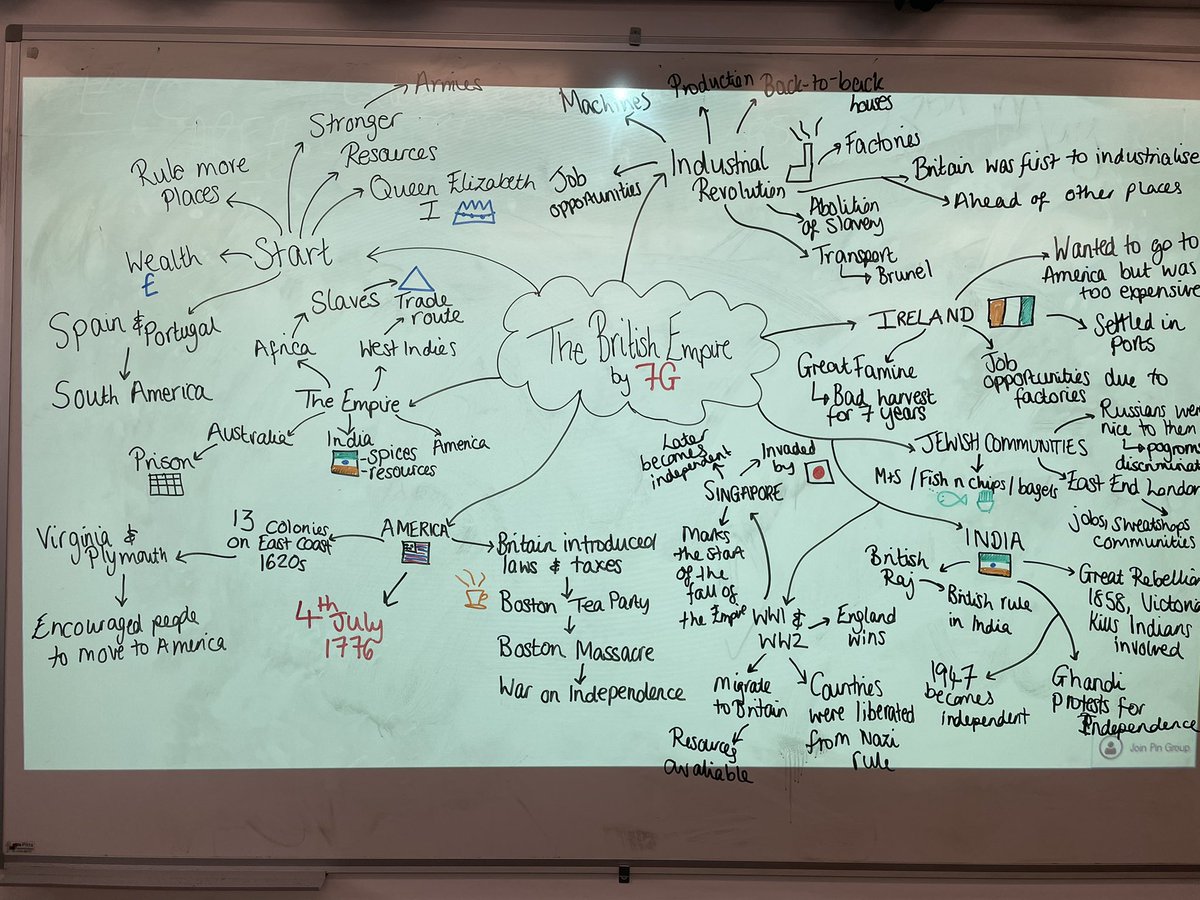 The British Empire
by 7G
Start
Armies
Stronger
Resources
Rule more
Places
Queen Elizabeth
I
Wealth
£
Spain & Portugal
South America
The Empire
Slaves
Trade
route
Africa
West Indies
Australia
Prison
India
-spices
-resources
America
AMERICA
13 colonies
on East Coast
1620s
Virginia &
Plymouth
Encouraged people
to move to America
4th
July
1776
Britain introduced
laws & taxes
Boston Tea Party
Boston Massacre
War on Independence
Industrial
Revolution
Machines
Production
Back-to-back
houses
Job
opportunities
Factories
Britain was first to industrialise
Ahead of other places
Abolition
of slavery
Transport
Brunel
IRELAND
Wanted to go to
America but was
too expensive
Settled in
Ports
Job
opportunities due to
factories
Great Famine
Bad harvest
for 7 years
JEWISH COMMUNITIES
Russians
nice to them
M+S / Fish n chips / bagels
East End London
jobs, sweatshops
communities
INDIA
British
Raj
British rule
in India
Great Rebellion
1858, Victoria
Kills Indians
involved
1947
becomes
independent
Ghandi
Protests for
Independence
WW1 &
WW2
England
wins
Migrate
to Britain
Resources
avaliable
Countries
were liberated
from Nazi
rule
SINGAPORE
Later
becomes
independent
Invaded
by
Marks
the start
of the
fall of
the Empire
Join Pin Group